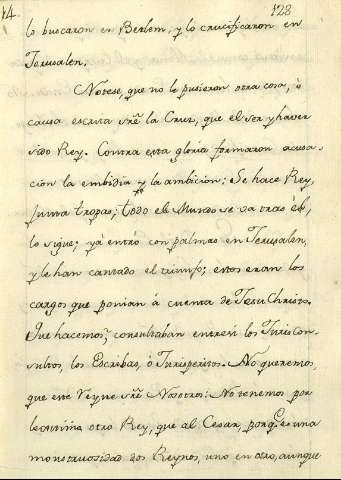 14.
128
lo buscaron en Berlem, y lo crucificaron en
Jerusalen.
Notese, que no le pusieron otra cosa, ò
causa escrita sre̅ la Cruz, que el ser y haver
sido Rey. Contra esta gloria formaron acusa-
cion la embidia y la ambicion; Se hace Rey,
junta tropas; todo el Mundo se va tras el,
lo sigue; yà entró con palmas en Jerusalen,
y le han cantado el triunfo; estos eran los
cargos que ponian à cuenta de Jesu Christo.
Que hacemos, consultaban entresi los Juriscon-
sultos, los Escribas, ò Jurisperitos. No queremos,
que este Reyne sre̅ Nosotros: No tenemos por
legitimo otro Rey, que al Cesar, porq.e es una
monstruosidad dos Reynos, uno en otro, aunque